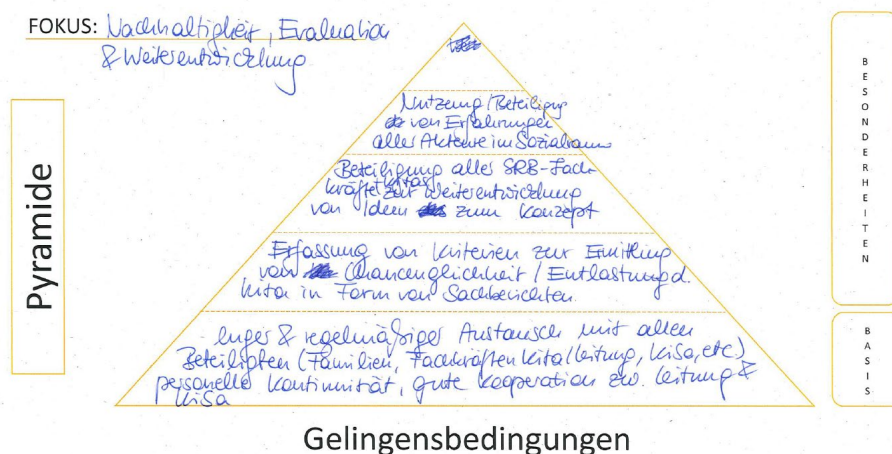 FOKUS: Nachhaltigkeit, Evaluation
& Weiterentwicklung
Pyramide
Nutzung/Beteiligung
von Erfahrungen
aller Akteure im Sozialraum
Beteiligung aller SRB-Fach-
kräfte Kitas zur Weiterentwicklung
von Ideen zum Konzept
Erfassung von Kriterien zur Ermittlung
von Chancengleichheit / Entlastung d.
Kita in Form von Sachberichten
enger & regelmäßiger Austausch mit allen
Beteiligten (Familien, Fachkräften Kita/Leitung, KiSa, etc.)
personelle Kontinuität, gute Kooperation zw. Leitung &
KiSa
Gelingensbedingungen
BESONDERHEITEN
BASIS